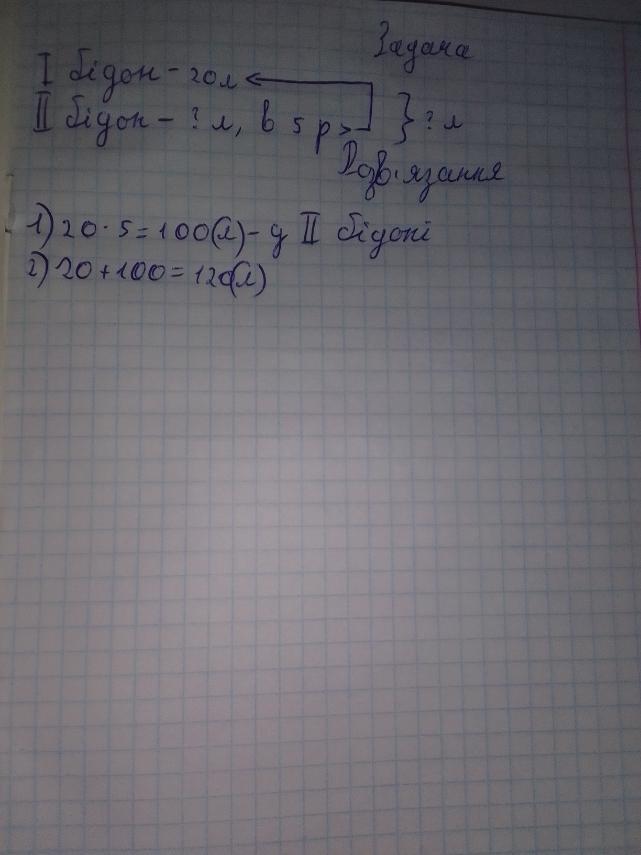 Задача
I бідон - 20л
II бідон - ? л, в 5 р > } ? л
Розв'язання
1) 20 · 5 = 100(л) - у II бідоні
2) 20 + 100 = 120(л)